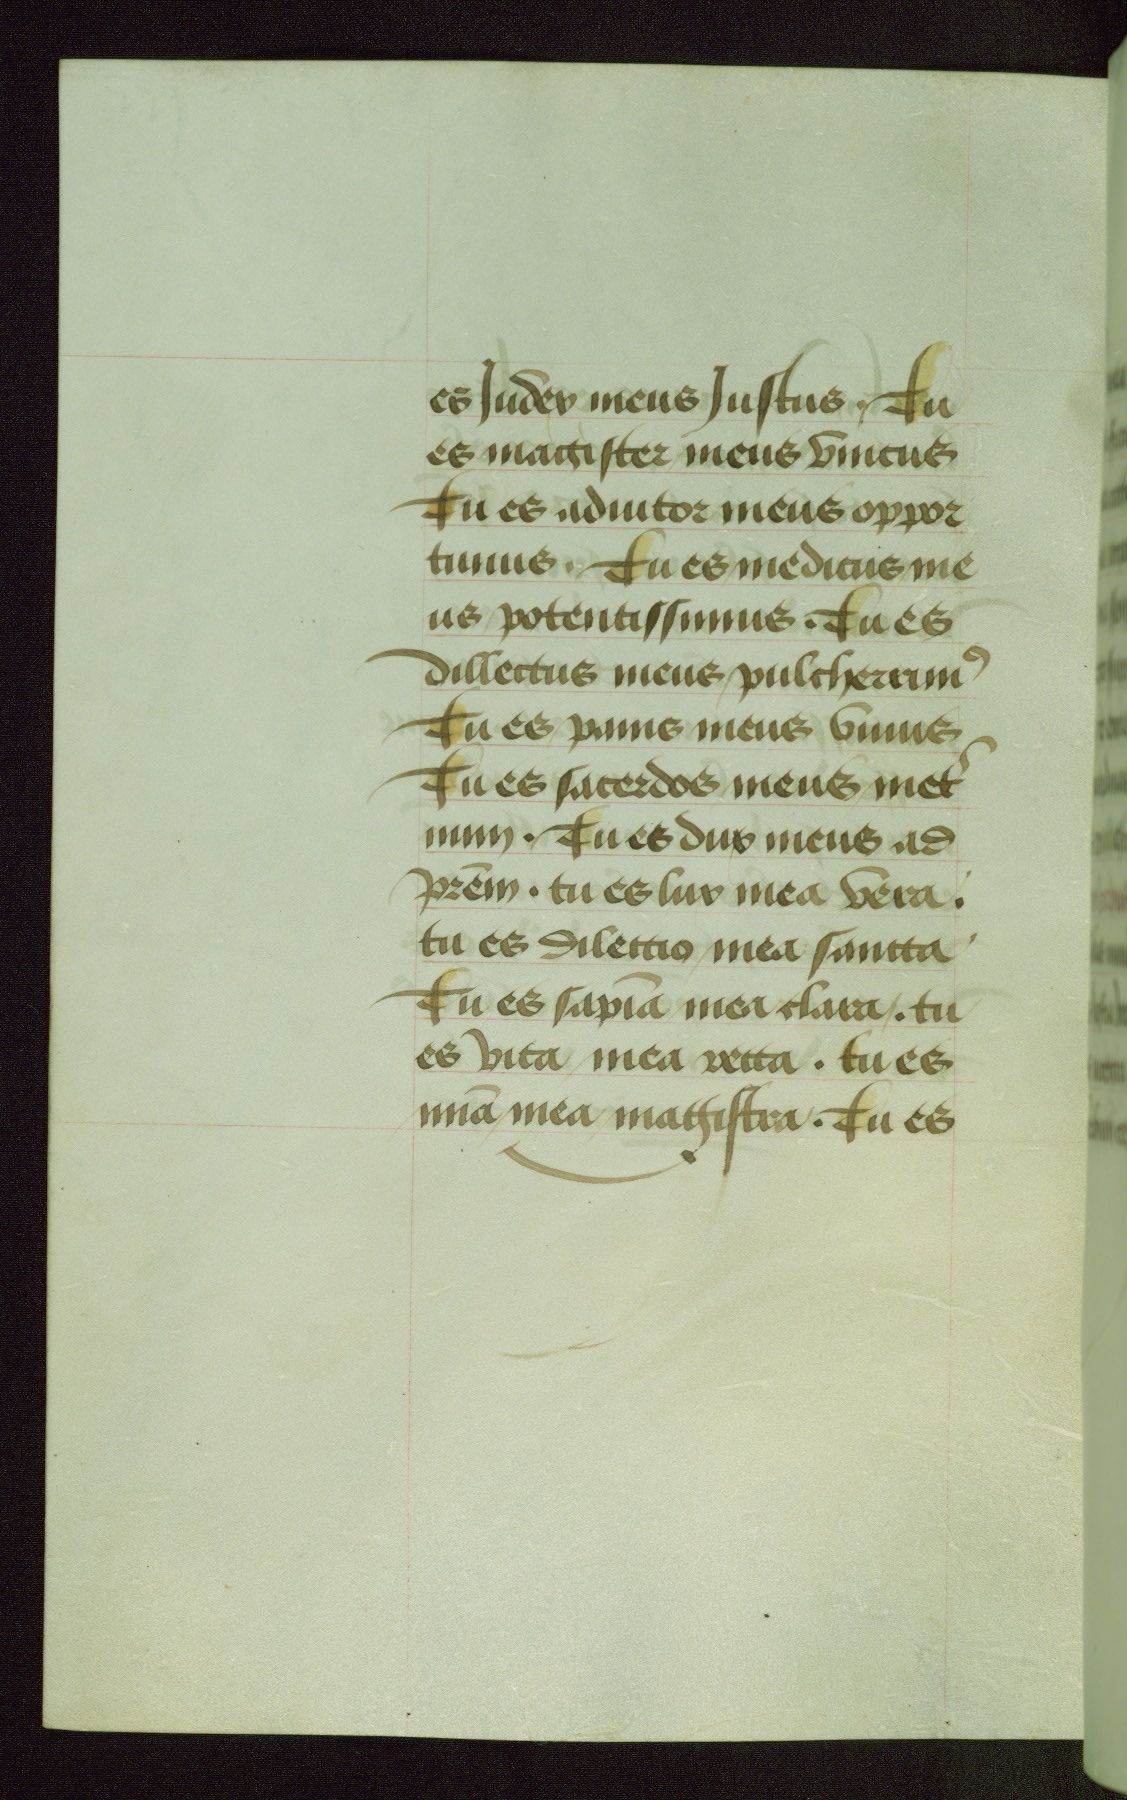 es Judex meus Justus. Tu
es magister meus vnicus
Tu es adiutor meus oppor
tunus. Tu es medicus me
us potentissimus. Tu es
dillectus meus pulcherrimꝰ
Tu es panis meus viuus
Tu es sacerdos meus in et̾
num. Tu es dux meus ad
pr̄em. tu es lux mea vera.
tu es dilectio mea sancta
Tu es sapīa mea clara. tu
es vita mea recta. tu es
mea magistra. Tu es